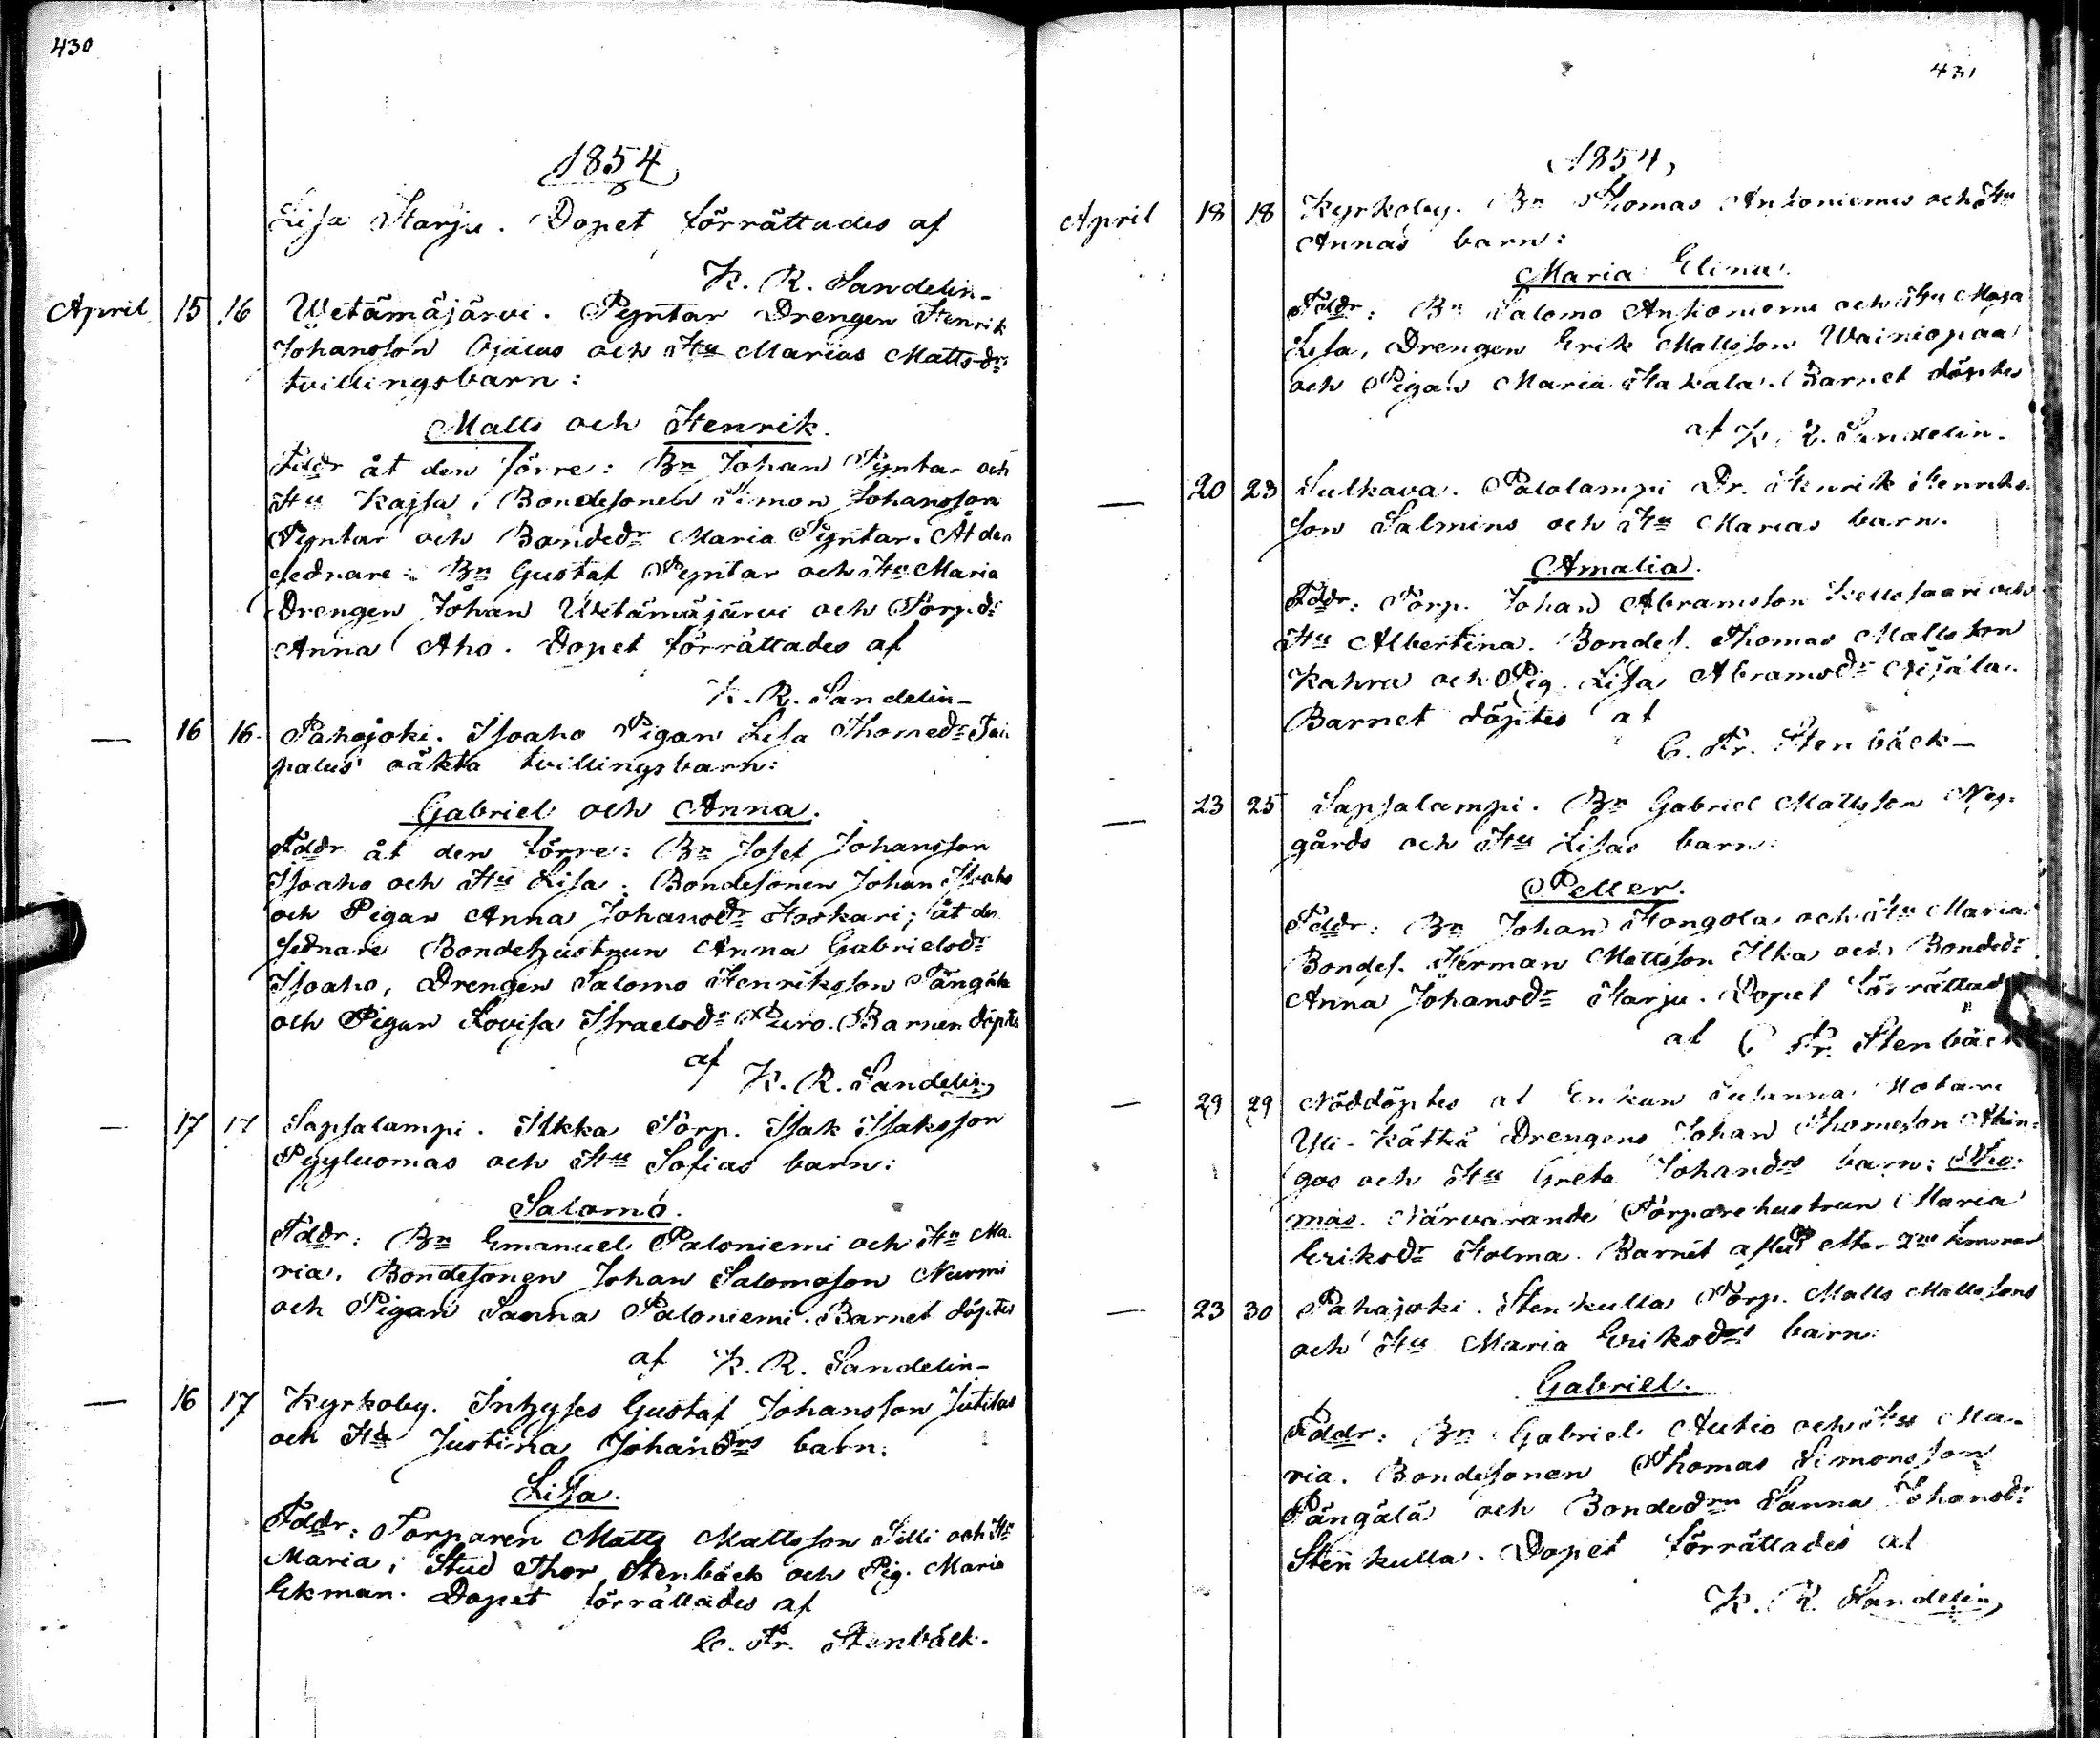 430
1854
Lisa Harju. Dopet förrättades af
K. R. Sandelin
April 15 16 Wetämäjärvi. Pyntar Drengen Henrik
Johansson Ojalas och Hu Marias Matts dr
tvillingsbarn:
Matts och Henrik.
Fddr åt den förre: Bn Johan Pyntar och
Hu Kajsa, Bondesonen Simon Johansson
Pyntar och Bondedr Maria Pyntar. Åt den
sednare: Bn Gustaf Pyntar och Hu Maria
Drengen Johan Wetämäjärvi och Torpdr
Anna Aho. Dopet förrättades af
K. R. Sandelin
— 16 16 Pahajoki. Isoaho Pigan Lisa Thomedr Tai
palus oäkta tvillingsbarn:
Gabriel och Anna.
Fddr åt den förre: Bn Josef Johansson
Isoaho och Hu Lisa. Bondesonen Johan Isoaho
och Pigan Anna Johansdr Koskari; åt den
sednare Bondehustrun Anna Gabrielsdr
Isoaho, Drengen Salomo Henriksson Pängälä
och Pigan Lovisa Israelsdr Puro. Barnen döptes
af K. R. Sandelin
— 17 17 Sapsalampi. Ilkka Torp. Isak Isaksson
Pyyluomas och Hu Sofias barn:
Salomo.
Fddr: Bn Emanuel Paloniemi och Hu Ma
ria. Bondesonen Johan Salomosson Nurmi
och Pigan Sanna Paloniemi. Barnet döptes
af K. R. Sandelin
— 16 17 Kyrkoby. Inhyses Gustaf Johansson Jutilas
och Hu Justina Johansdrs barn:
Lisa.
Fddr: Torparen Matts Mattsson Silli och Hu
Maria; Stud Thor Stenbäck och Pig. Maria
Ekman. Dopet förrättades af
C. Fr. Stenbäck.
431
1854
April 18 18 Kyrkoby. Bn Thomas Antoniemis och Hu
Annas barn:
Maria Elina.
Fddr: Bn Salomo Antoniemi och Hu Maja
Lisa, Drengen Erik Mattsson Wainiopaa
och Pigan Maria Hakala. Barnet döptes
af K. R. Sandelin.
— 20 23 Sulkava. Palolampi Dr. Henrik Henriks
son Salmins och Hu Marias barn.
Amalia.
Fddr: Torp. Johan Abramsson Kellosaari och
Hu Albertina. Bondes. Thomas Mattsson
Kahra och Pig. Lisa Abramsdr
Barnet döptes af
C. Fr. Stenbäck
— 23 25 Sapsalampi. Bn Gabriel Mattsson Ny-
gårds och Hu Lisas barn:
Petter.
Fddr: Bn Johan Hongola och Hu Maria
Bondes. Herman Mattsson Ilka och Bondedr
Anna Johansdr Harju. Dopet förrättad
af C Fr. Stenbäck
— 29 29 Nöddöptes af Enkan Susanna
Yli-Kätkä Drengens Johan Thomesson
gos och Hu Greta Johansdrs barn: Tho-
mas. Närvarande Torparehustrun Maria
Eriksdr Holma. Barnet afled efter 2ne timmar
— 23 30 Pahajoki. Stenkulla Torp. Matts Mattssons
och Hu Maria Eriksdrs barn:
Gabriel.
Fddr: Bn Gabriel Autio och Hu Ma-
ria. Bondesonen Thomas Simonsson
Pängälä och Bondedrn Sanna Johansdr
Stenkulla. Dopet förrättades af
K. R. Sandelin